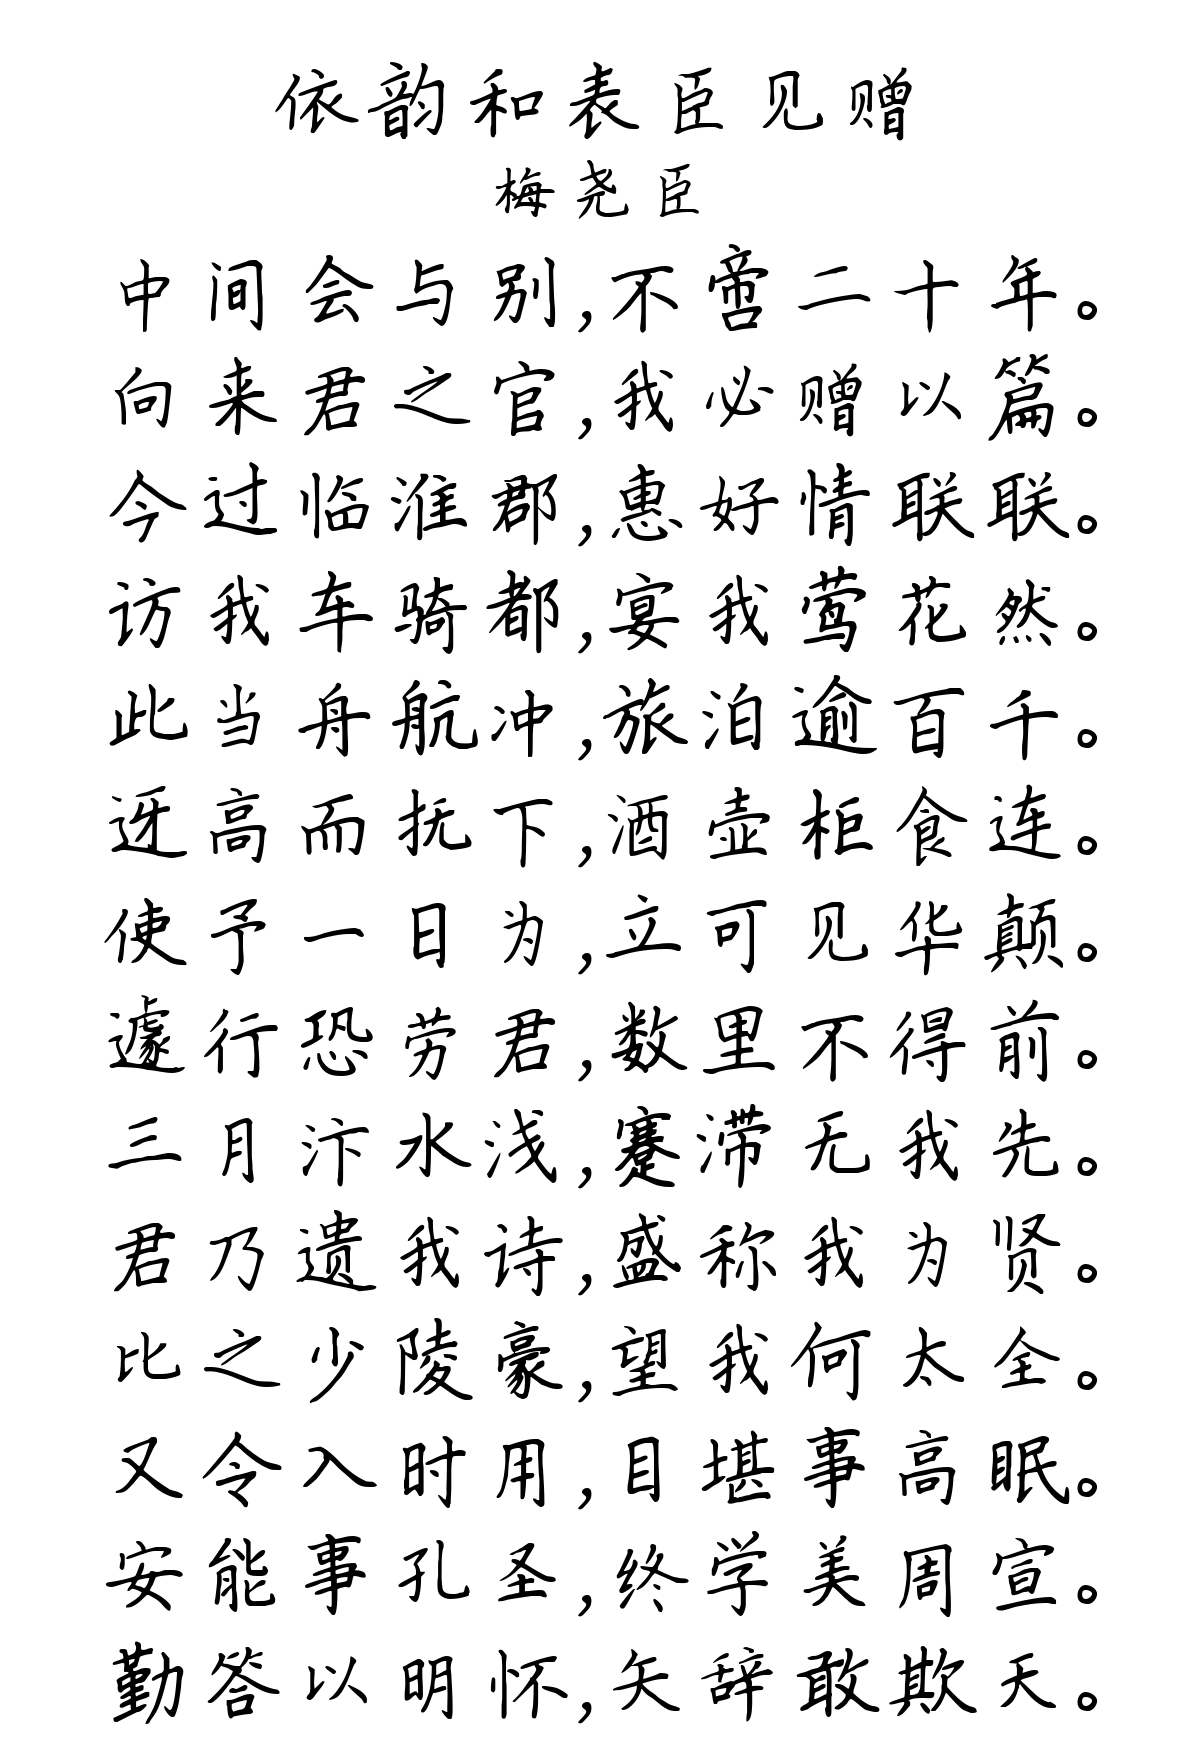 依韵和表臣见赠
梅尧臣
中间会与别,不啻二十年。
向来君之官,我必赠以篇。
今过临淮郡,惠好情联联。
访我车骑都,宴我莺花然。
此当舟航冲,旅泊逾百千。
迓高而抚下,酒壶柜食连。
使予一日为,立可见华颠。
遽行恐劳君,数里不得前。
三月汴水浅,蹇滞无我先。
君乃遗我诗,盛称我为贤。
比之少陵豪,望我何太全。
又令入时用,目堪事高眠。
安能事孔圣,终学美周宣。
勤答以明怀,矢辞敢欺天。